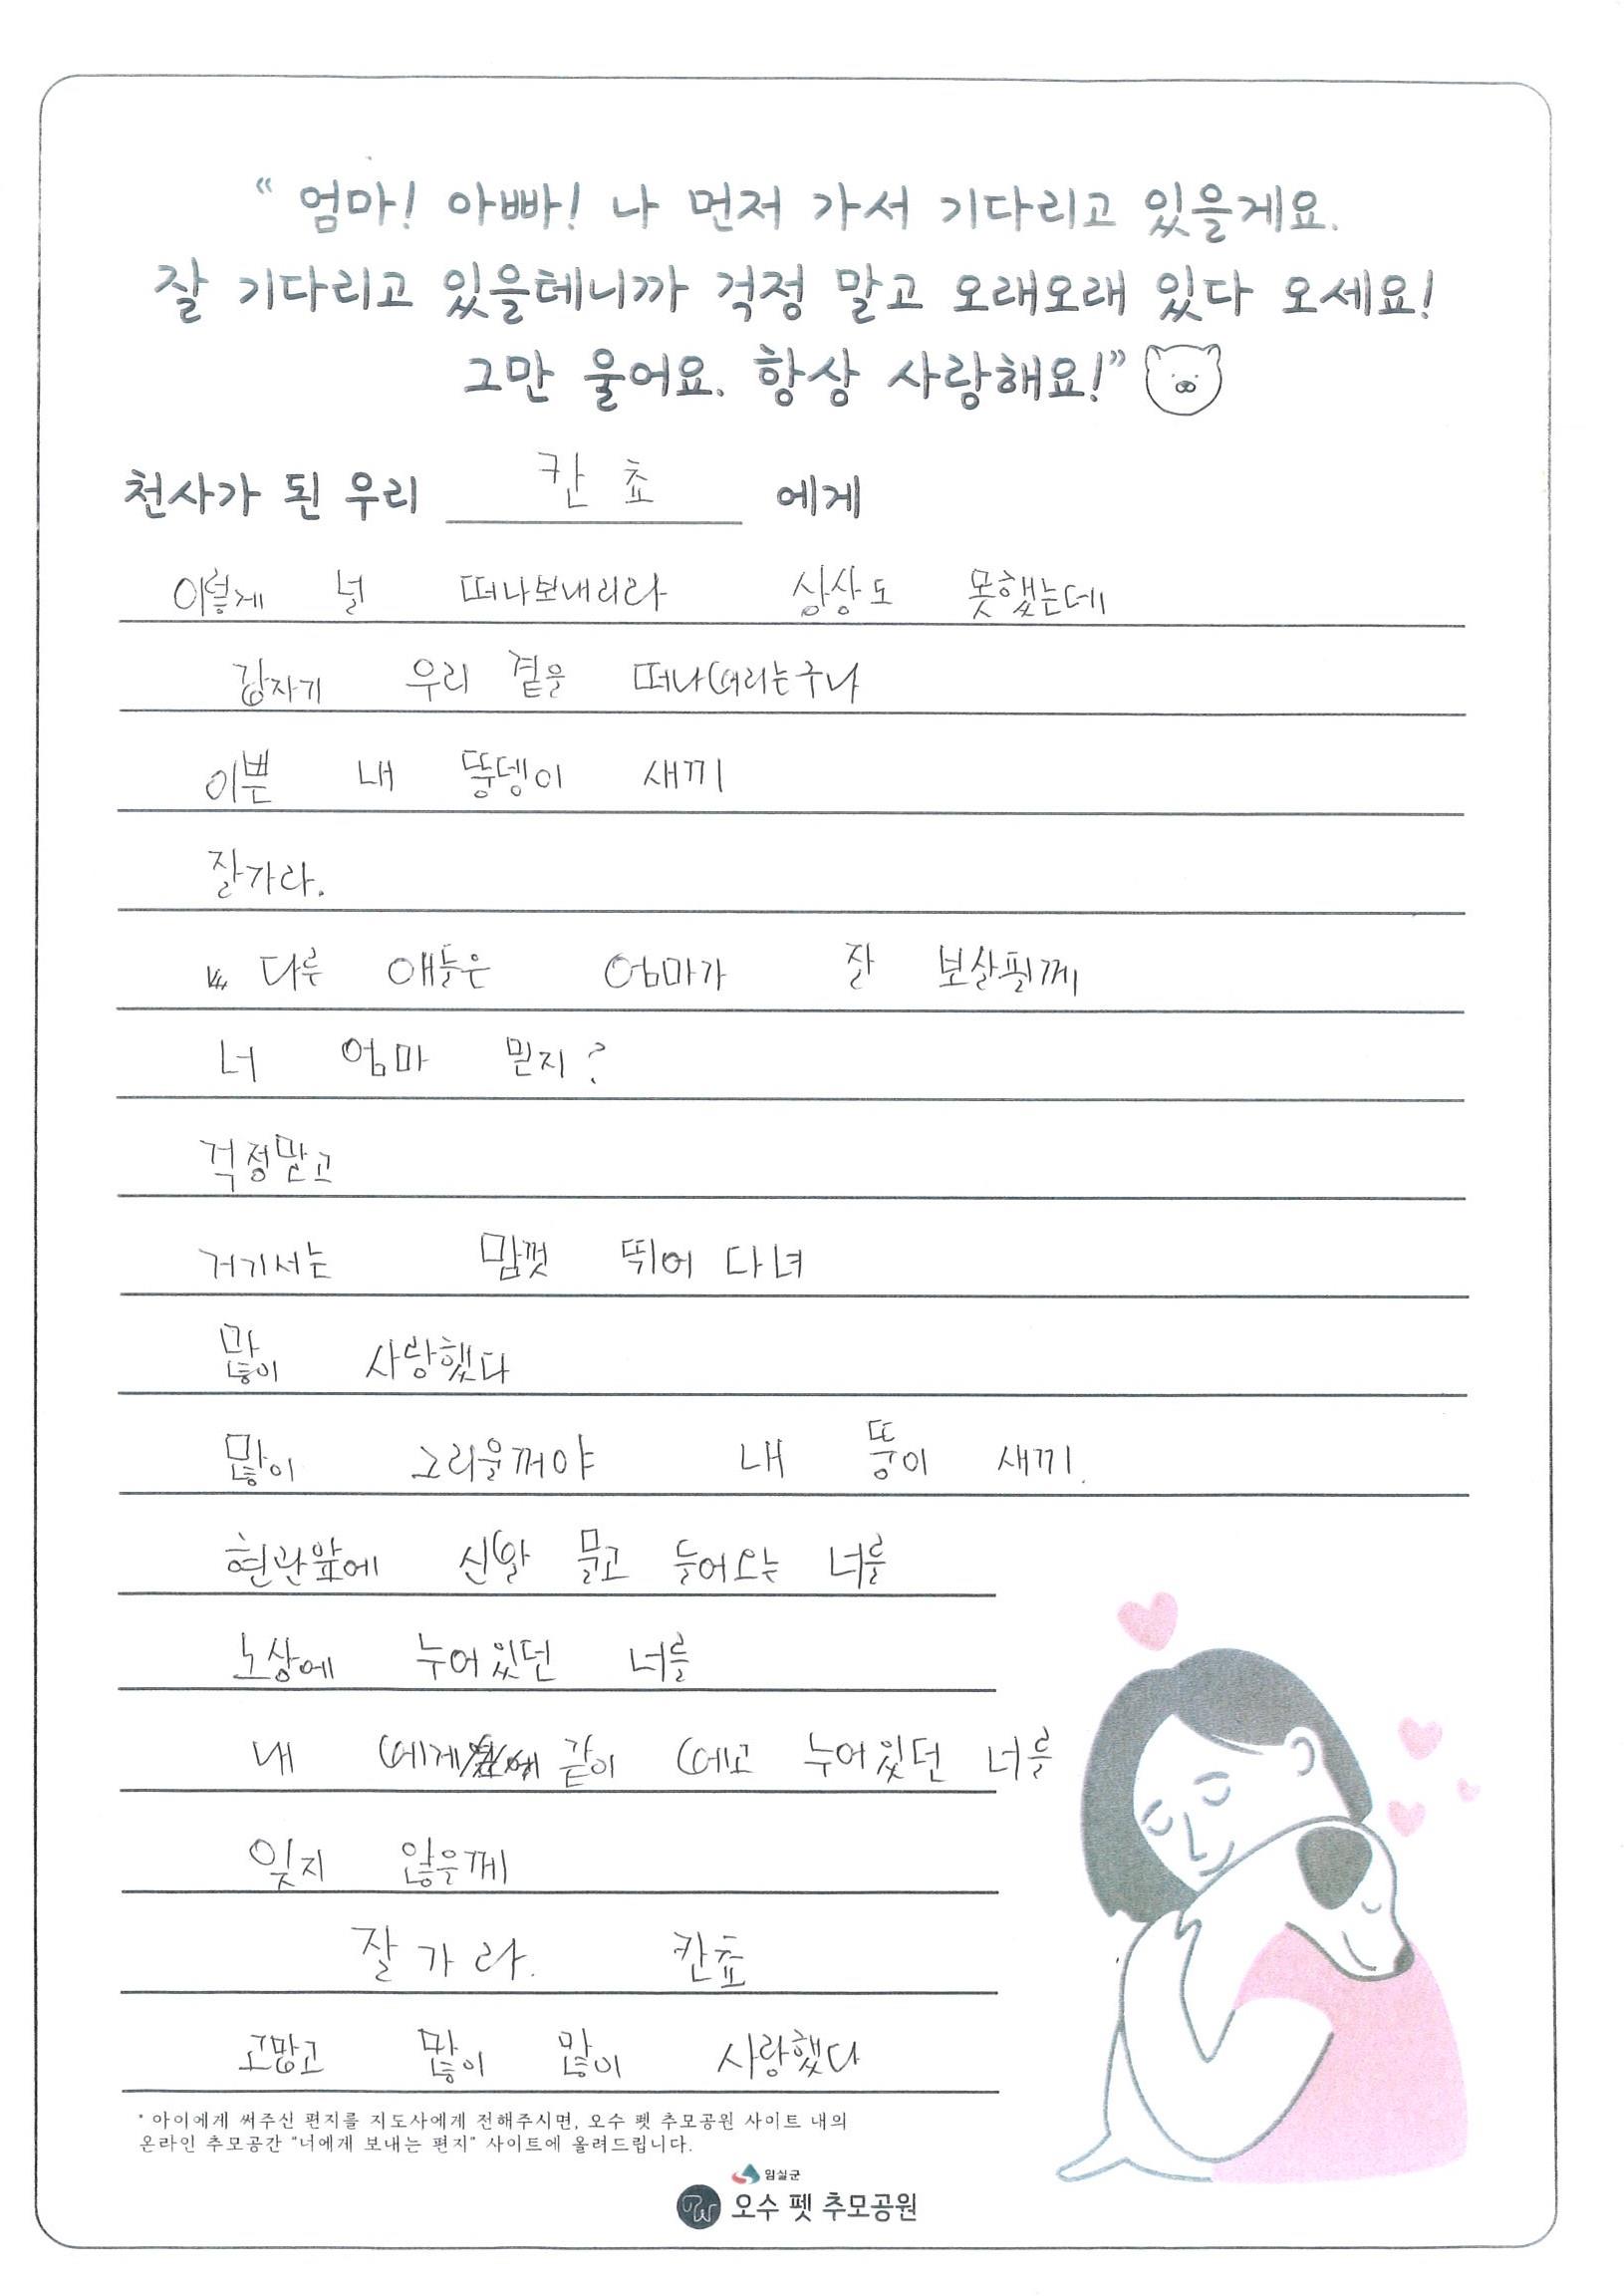 “ 엄마! 아빠! 나 먼저 가서 기다리고 있을게요.
잘 기다리고 있을테니까 걱정 말고 오래오래 있다 오세요!
그만 울어요. 항상 사랑해요!”
천사가 된 우리 칸쵸 에게
이렇게 널 떠나보내리라 상상도 못했는데
갑자기 우리 곁을 떠나버리는구나
이쁜 내 뚱뎅이 새끼
잘가라.
다루 애들은 엄마가 잘 보살필께
너 엄마 믿지?
걱정말고
거기서는 맘껏 뛰어 다녀
많이 사랑했다
많이 그리울꺼야 내 뚱이 새끼.
현관앞에 신발 물고 들어오는 너를
노상에 누어있던 너를
내 베게 같이 베고 누어있던 너를
잊지 않을께
잘가라. 칸쵸
고맙고 많이 많이 사랑했다
* 아이에게 써주신 편지를 지도사에게 전해주시면, 오수 펫 추모공원 사이트 내의
온라인 추모공간 “너에게 보내는 편지” 사이트에 올려드립니다.
임실군
오수 펫 추모공원